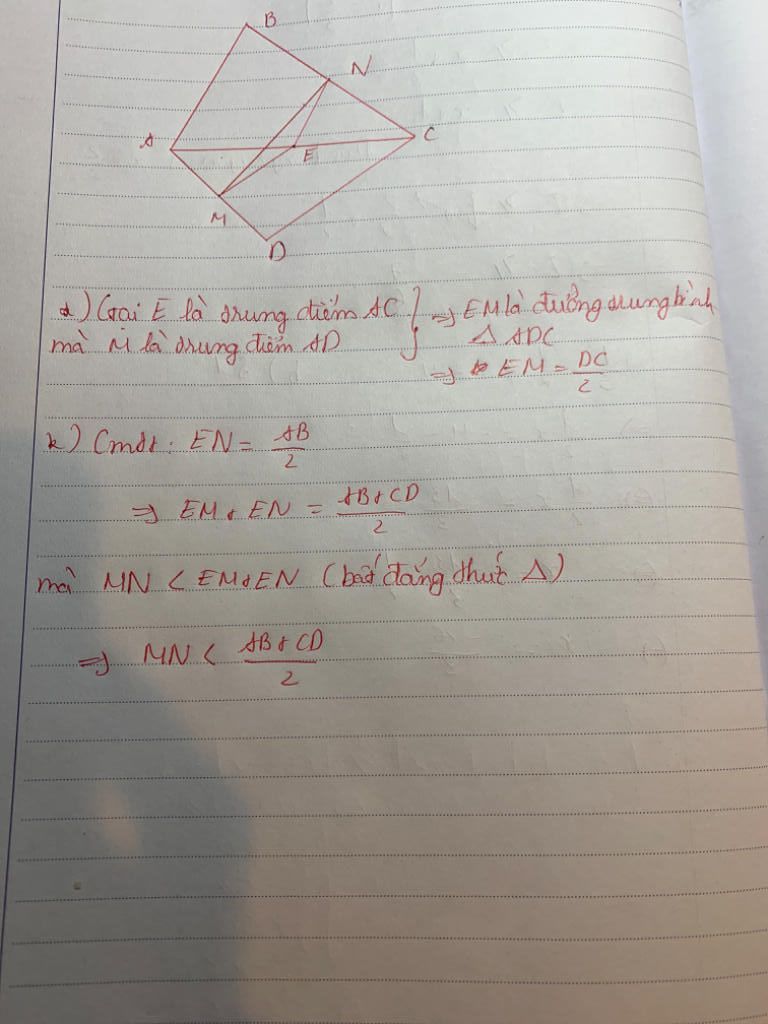 B
N
A
E
C
M
D
a) Gọi E là trung điểm AC
mà M là trung điểm AD
} => EM là đường trung bình
Δ ADC
=> EM = DC/2
b) Cmtt: EN = AB/2
=> EM + EN = AB + CD/2
mà MN < EM + EN (bất đẳng thức Δ)
=> MN < AB + CD/2